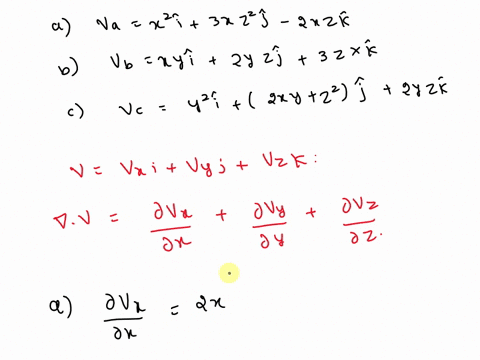 a) Va = x²î + 3xz²ĵ - 2xzk̂
b) Vb = xyî + 2yzĵ + 3zxk̂
c) Vc = y²î + (2xy + z²)ĵ + 2yzk̂
V = Vxi + Vyj + Vzk:
∇.V = ∂Vx/∂x + ∂Vy/∂y + ∂Vz/∂z.
a) ∂Vx/∂x = 2x